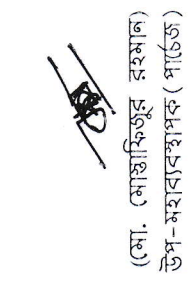 (মো. মোস্তাফিজুর রহমান)
উপ-মহাব্যবস্থাপক (পাওজ)